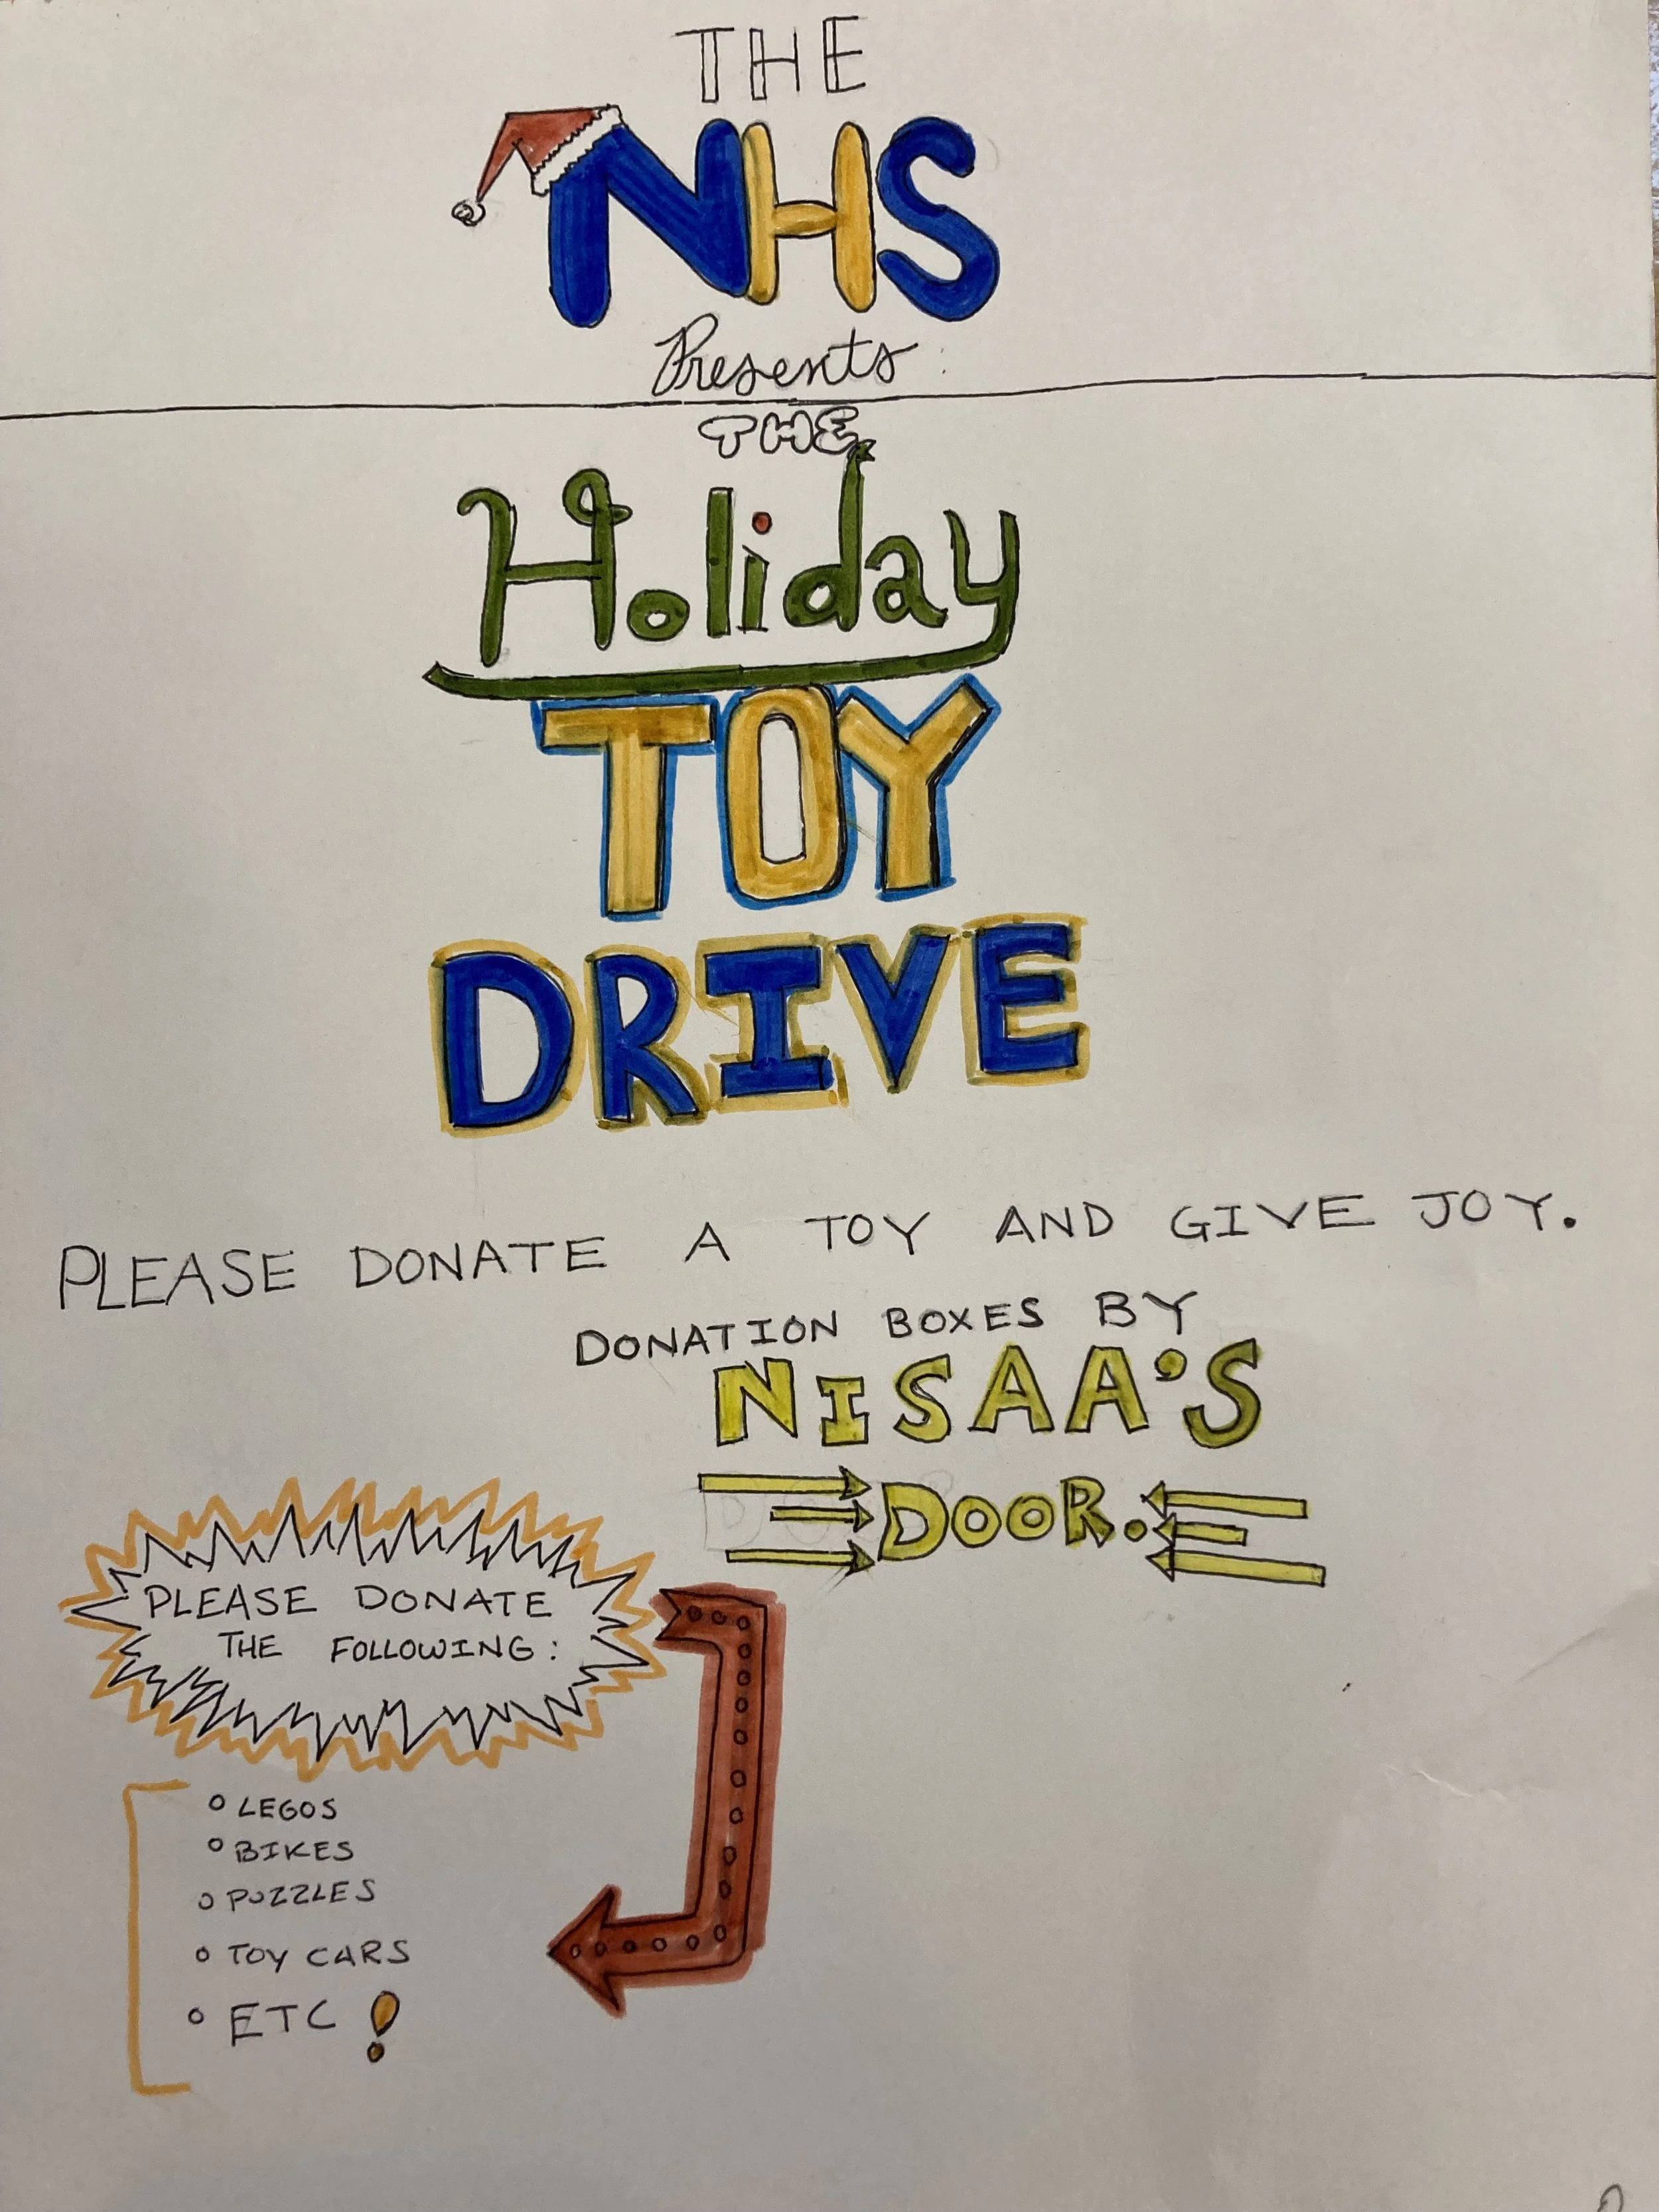 THE
NHS
Presents
THE
Holiday
TOY
DRIVE
PLEASE DONATE A TOY AND GIVE JOY.
DONATION BOXES BY
NISAA'S
DOOR.
PLEASE DONATE
THE FOLLOWING:
LEGOS
BIKES
PUZZLES
TOY CARS
ETC!